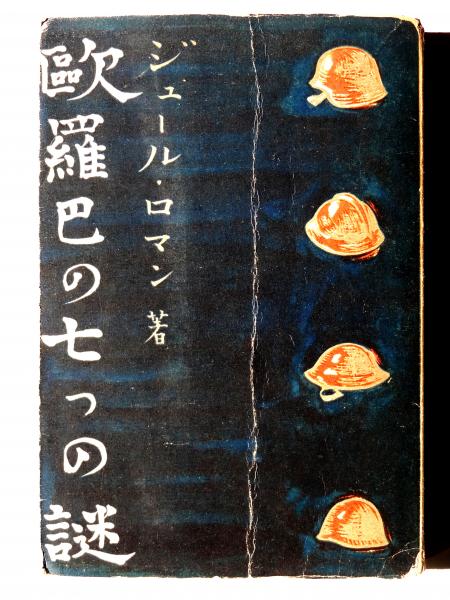 ジュール・ロマン 著
歐羅巴の七つの謎